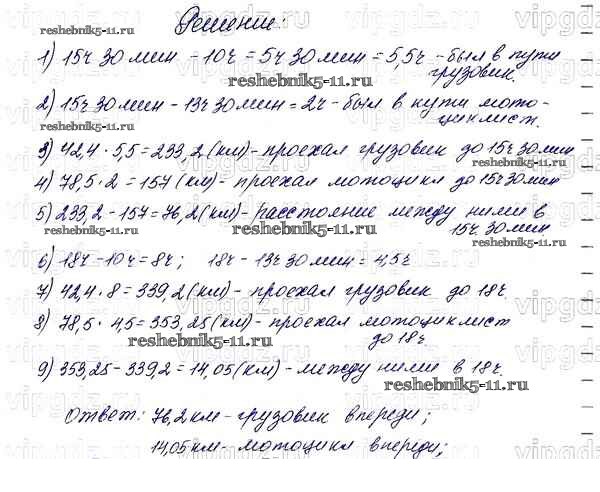 Решение:
1) 15ч 30 мин - 10ч = 5ч 30 мин = 5,5ч - был в пути
грузовик.
reshebnik5-11.ru.
2) 15ч 30 мин - 13ч 30 мин = 2ч - был в пути мото-
reshebnik5-11.ru
циклист.
3) 42,4 · 5,5 = 233,2 (км) - проехал грузовик до 15ч 30 мин
4) 78,5 · 2 = 157 (км) - проехал мотоцикл до 15ч 30 мин
5) 233,2 - 157 = 76,2 (км) - расстояние между ними в
reshebnik5-11.ru. reshebnik5-11.ru.
15ч. 30 мин
6) 18ч - 10ч = 8ч; 18ч - 13ч 30 мин = 4,5ч
7) 42,4 · 8 = 339,2 (км) - проехал грузовик до 18ч.
8) 78,5 · 4,5 = 353,25 (км) - проехал мотоциклист
reshebnik5-11.ru
до 18ч
9) 353,25 - 339,2 = 14,05 (км) - между ними в 18ч.
reshebnik5-11.ru
Ответ: 76,2 км - грузовик впереди;
14,05 км - мотоцикл впереди;
reshebnik5-11.ru
vipgdz.ru